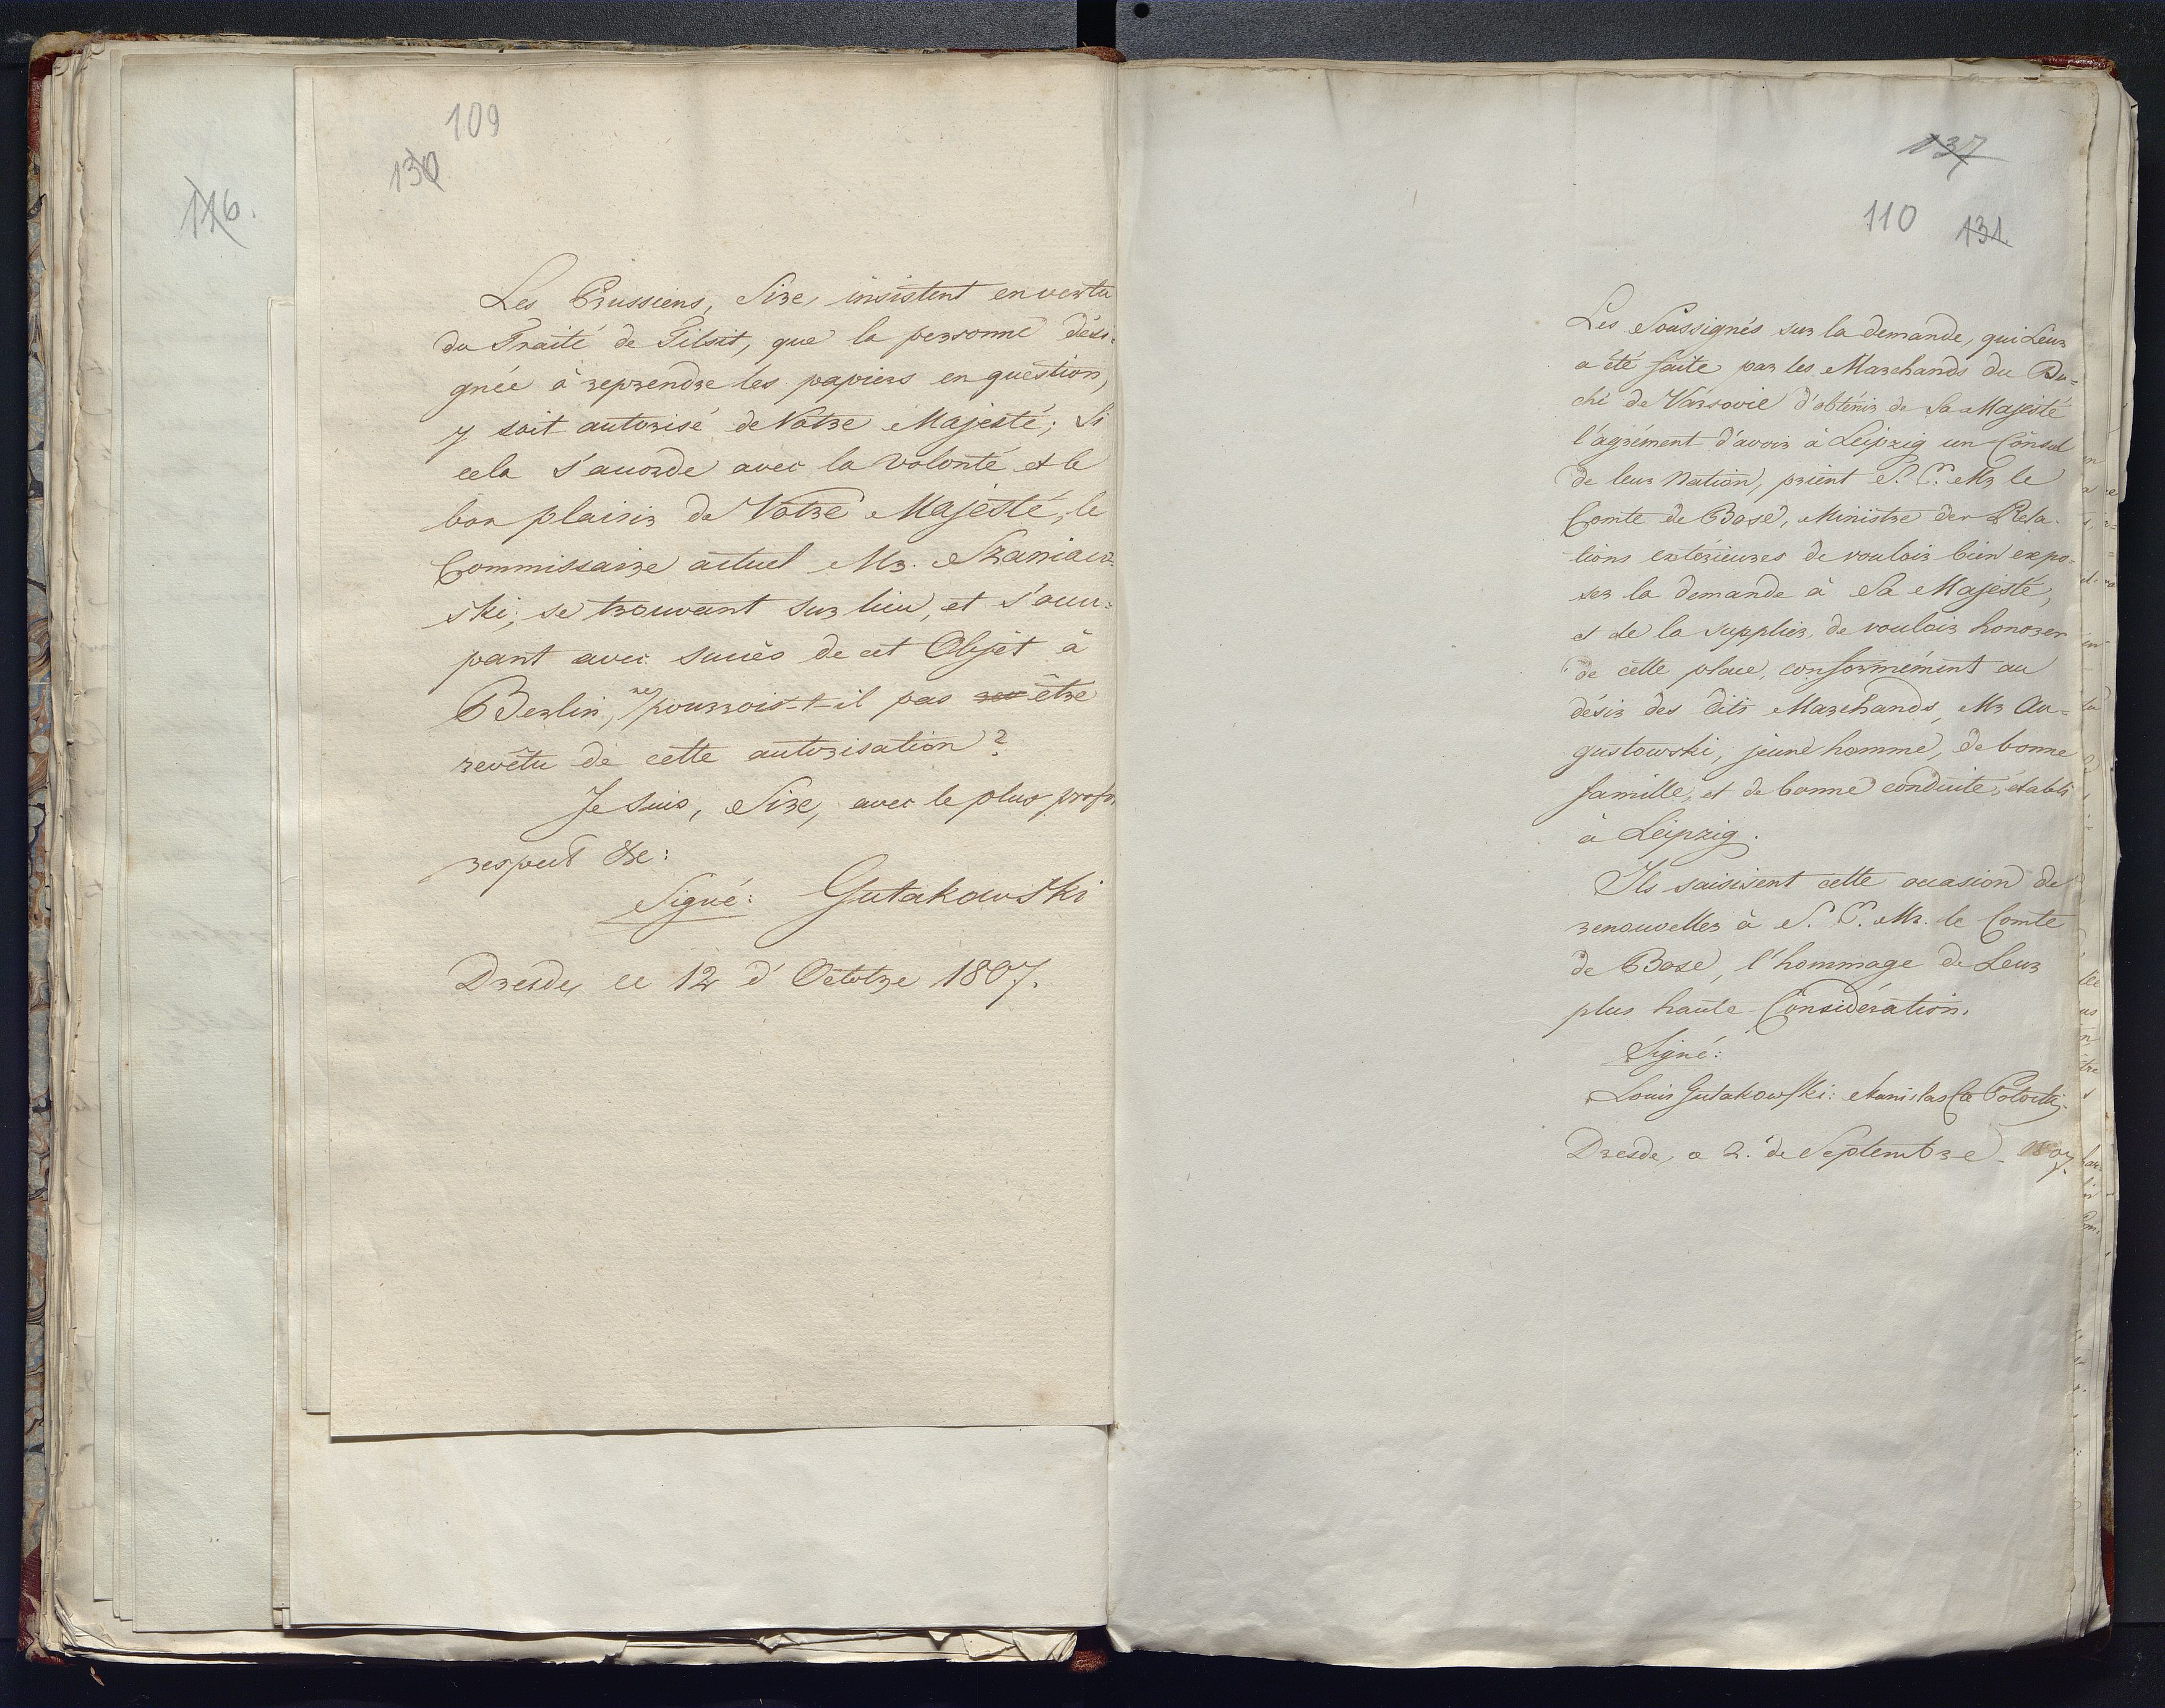 109
130
116.
Les Prussiens, Sire, insistent en vertu
du Traité de Tilsit, que la personne dési-
gnée à reprendre les papiers en question,
y soit autorisé de Votre Majesté; Si
cela s'accorde avec la volonté et le
bon plaisir de Votre Majesté, le
Commissaire actuel Mr. Szaniaw-
ski, se trouvant sur lieu, et s'occu-
pant avec succès de cet Objèt à
Berlin, ne pourroit-t-il pas être
revêtu de cette autorisation?
Je suis, Sire, avec le plus profo
respect &c:
Signé: Gutakowski
Dresde, ce 12 d'Octobre 1807.
137
110 131
Les Soussignés sur la demande, qui Leur
a été faite par les Marchands du Du-
ché de Varsovie d'obtenir de Sa Majesté
l'agrément d'avoir à Leipzig un Consul
de leur Nation, prient S. E. Mr le
Comte de Bose, Ministre der Rela-
tions extérieures de vouloir bien expo-
ser la demande à Sa Majesté,
et de la supplier, de vouloir honorer
de cette place, conformément au
désir des dits Marchands, Mr Au-
gustowski, jeune homme, de bonne
famille, et de bonne conduite, établi
à Leipzig.
Ils saisissent cette occasion de
renouveller à S. E. Mr. le Comte
de Bose, l'hommage de Leur
plus haute Considération.
Signé:
Louis Gutakowski: Stanislas Ct Potocki
Dresde, a 2. de Septembre 1807.